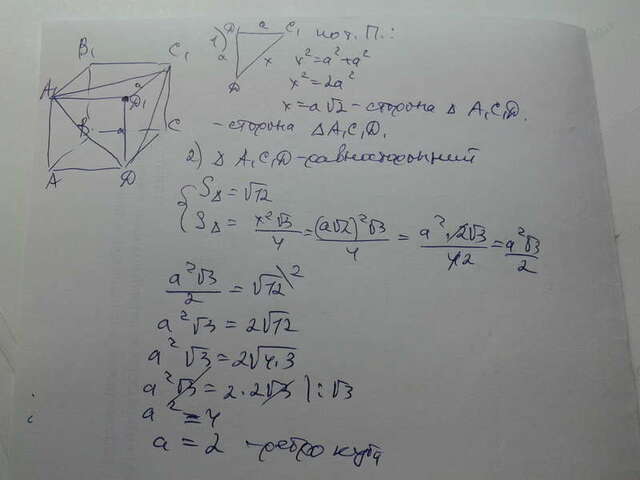 B₁
C₁
A₁
a
D₁
B
a
C
A
D
1) D a C₁ по т. П.:
a x
D
x² = a² + a²
x² = 2a²
x = a√2 - сторона Δ A₁C₁D.
- сторона Δ A₁C₁D.
2) Δ A₁C₁D - равносторонний
{ S_Δ = √12
S_Δ = x²√3/4 = (a√2)²√3/4 = a²·2√3/4 2 = a²√3/2
a²√3/2 = √12 \2
a²√3 = 2√12
a²√3 = 2√4·3
a²√3 = 2·2√3 | : √3
a² = 4
a = 2 - ребро куба